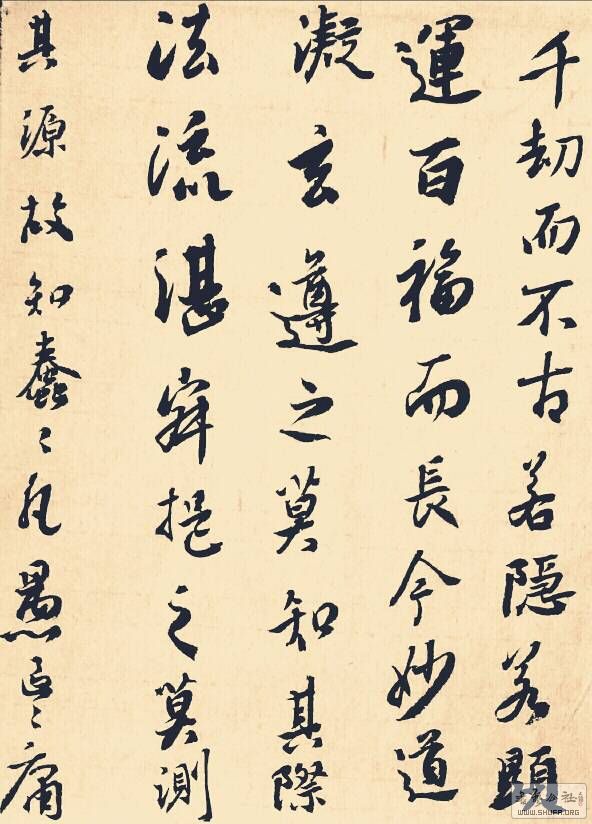 千劫而不古若隱若顯
運百福而長今妙道
凝玄遵之莫知其際
法流湛寂挹之莫測
其源故知蠢々凡愚區々庸
WWW.SHUFA.ORG